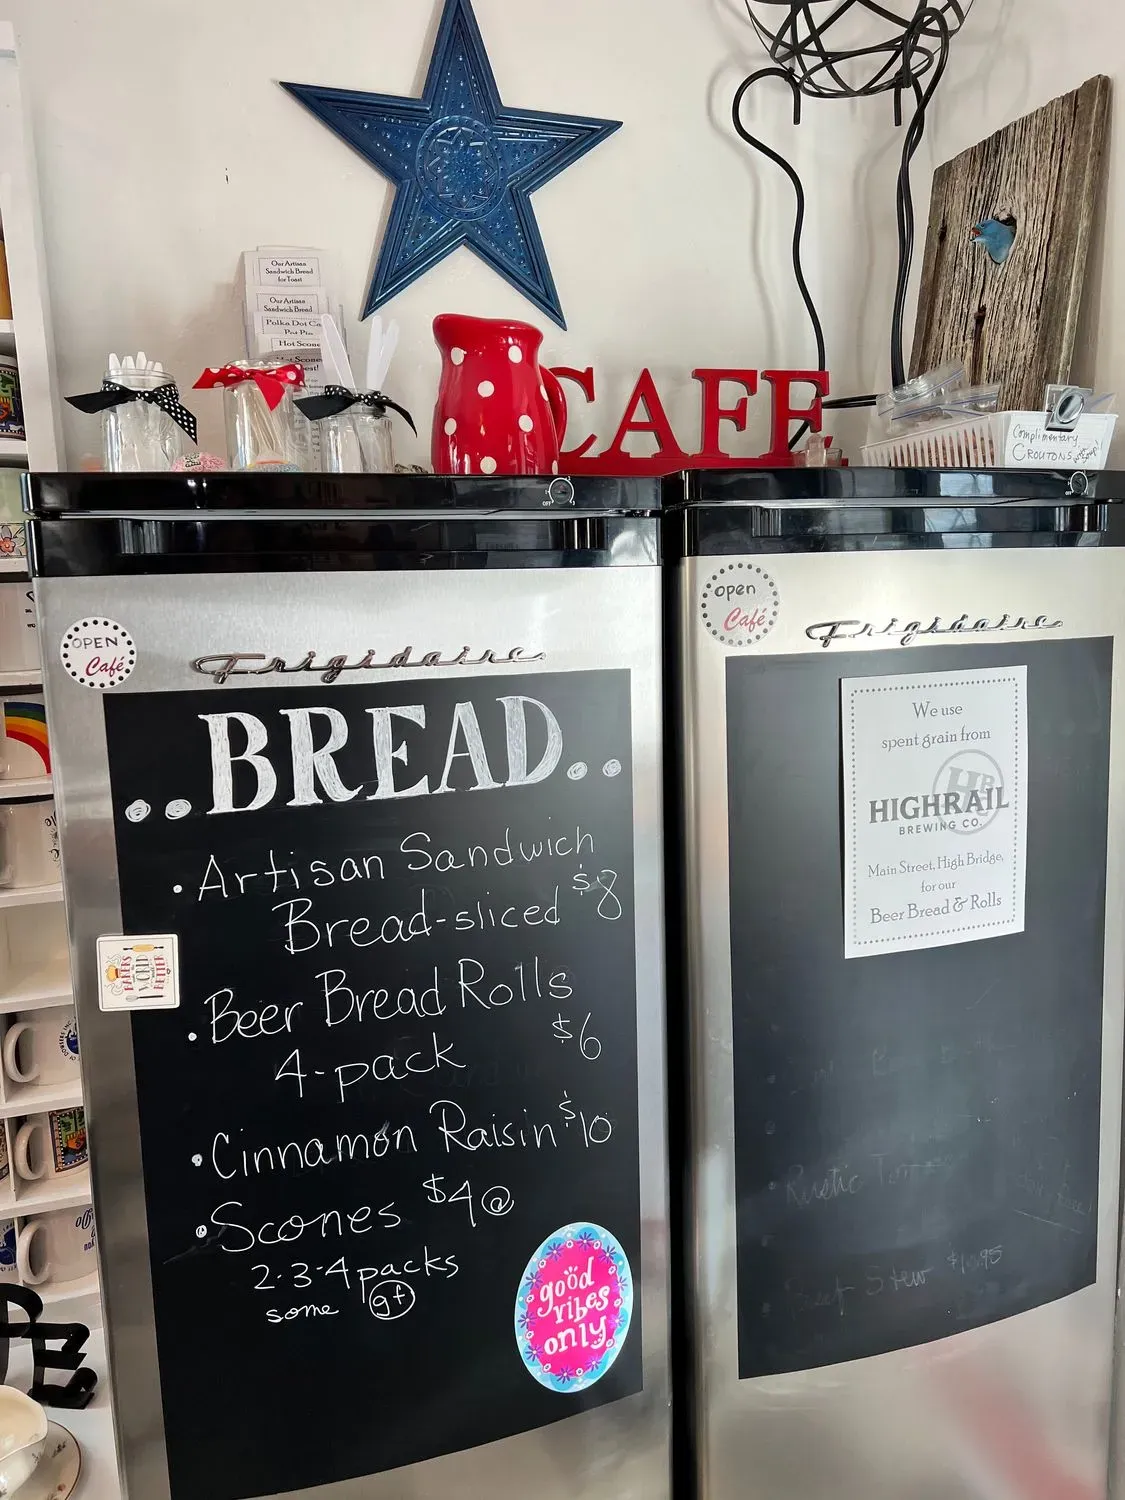 Our Artisan
Sandwich Bread
for Toast
Our Artisan
Sandwich Bread
Polka Dot
Pot Pie
Hot Scones
CAFE
Complimentary
CROUTONS
OFF
OPEN
Café
Frigidaire
BREAD
Artisan Sandwich
Bread-sliced $8
Beer Bread Rolls
4-pack $6
Cinnamon Raisin $10
Scones $4@
2-3-4 packs
some gf
good
vibes
only
BAKERS
MAKE THE
WORLD
BETTER
open
Café
Frigidaire
We use
spent grain from
HR
HIGHRAIL
BREWING CO.
Main Street, High Bridge,
for our
Beer Bread & Rolls
Rustic
Beef Stew $10.95